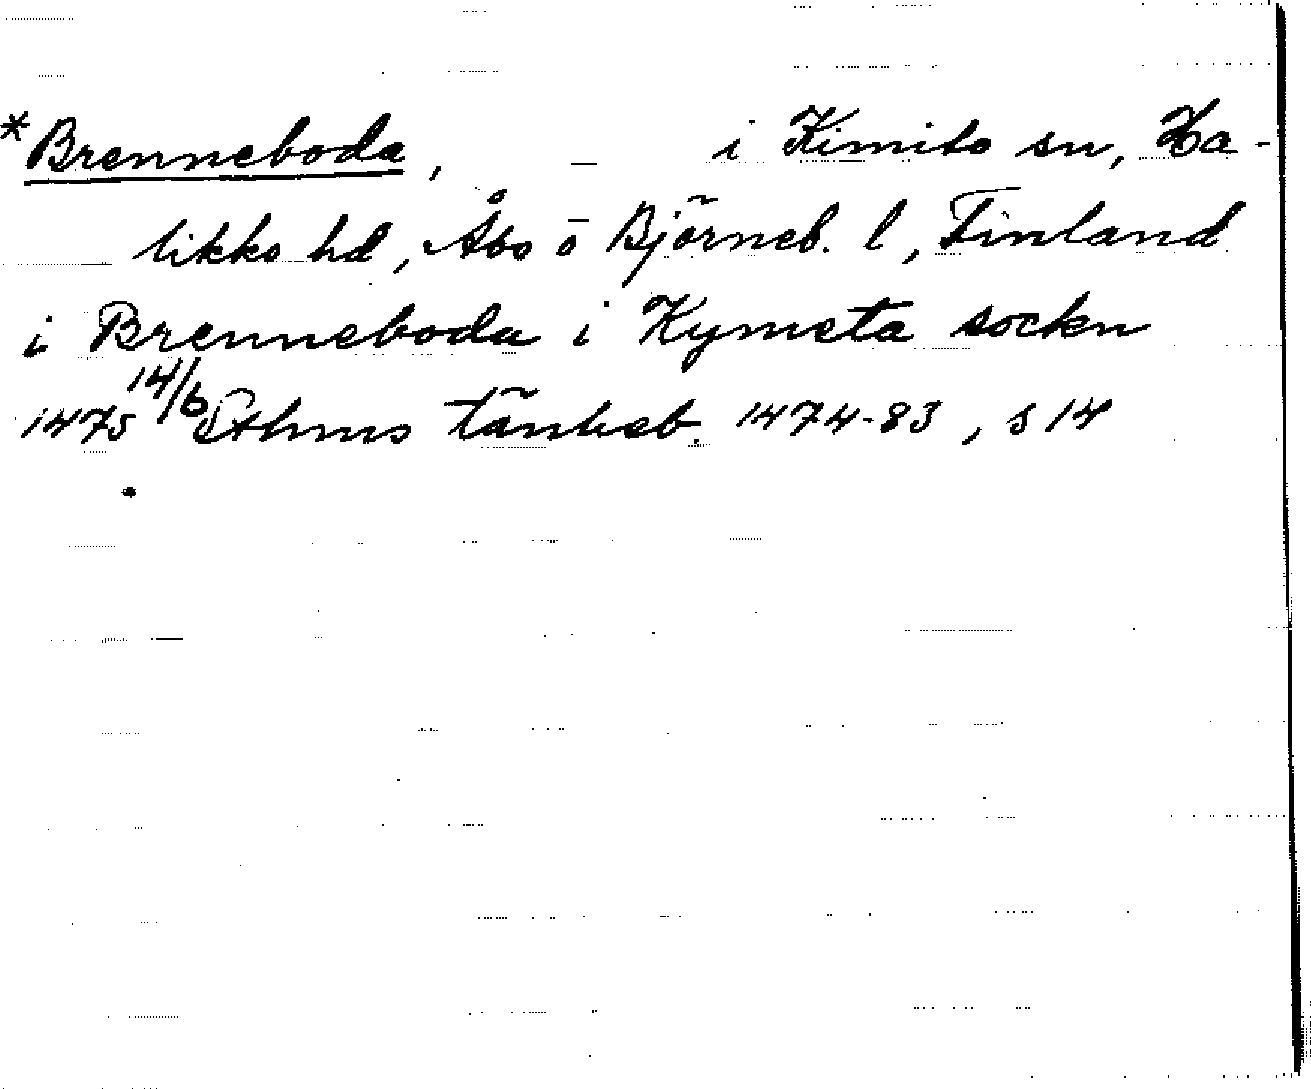 *Brenneboda, – i Kimito sn, Ha-
likko hd, Åbo o Björneb. l, Finland
i Brenneboda i Kymeta sockn
1475 14/6 Sthms tänkeb. 1474-83, s 14